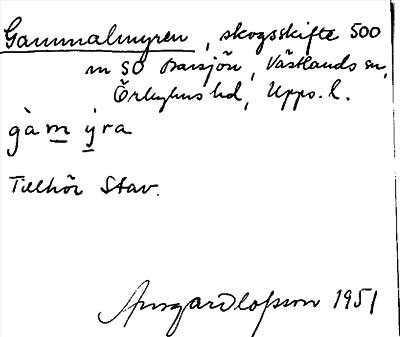 Gammalmyren, skogsskifte 500
m SO Barsjön, Västlands sn,
Örbyhus hd, Upps. l.
gàm ýra
Tillhör Stav.
1951